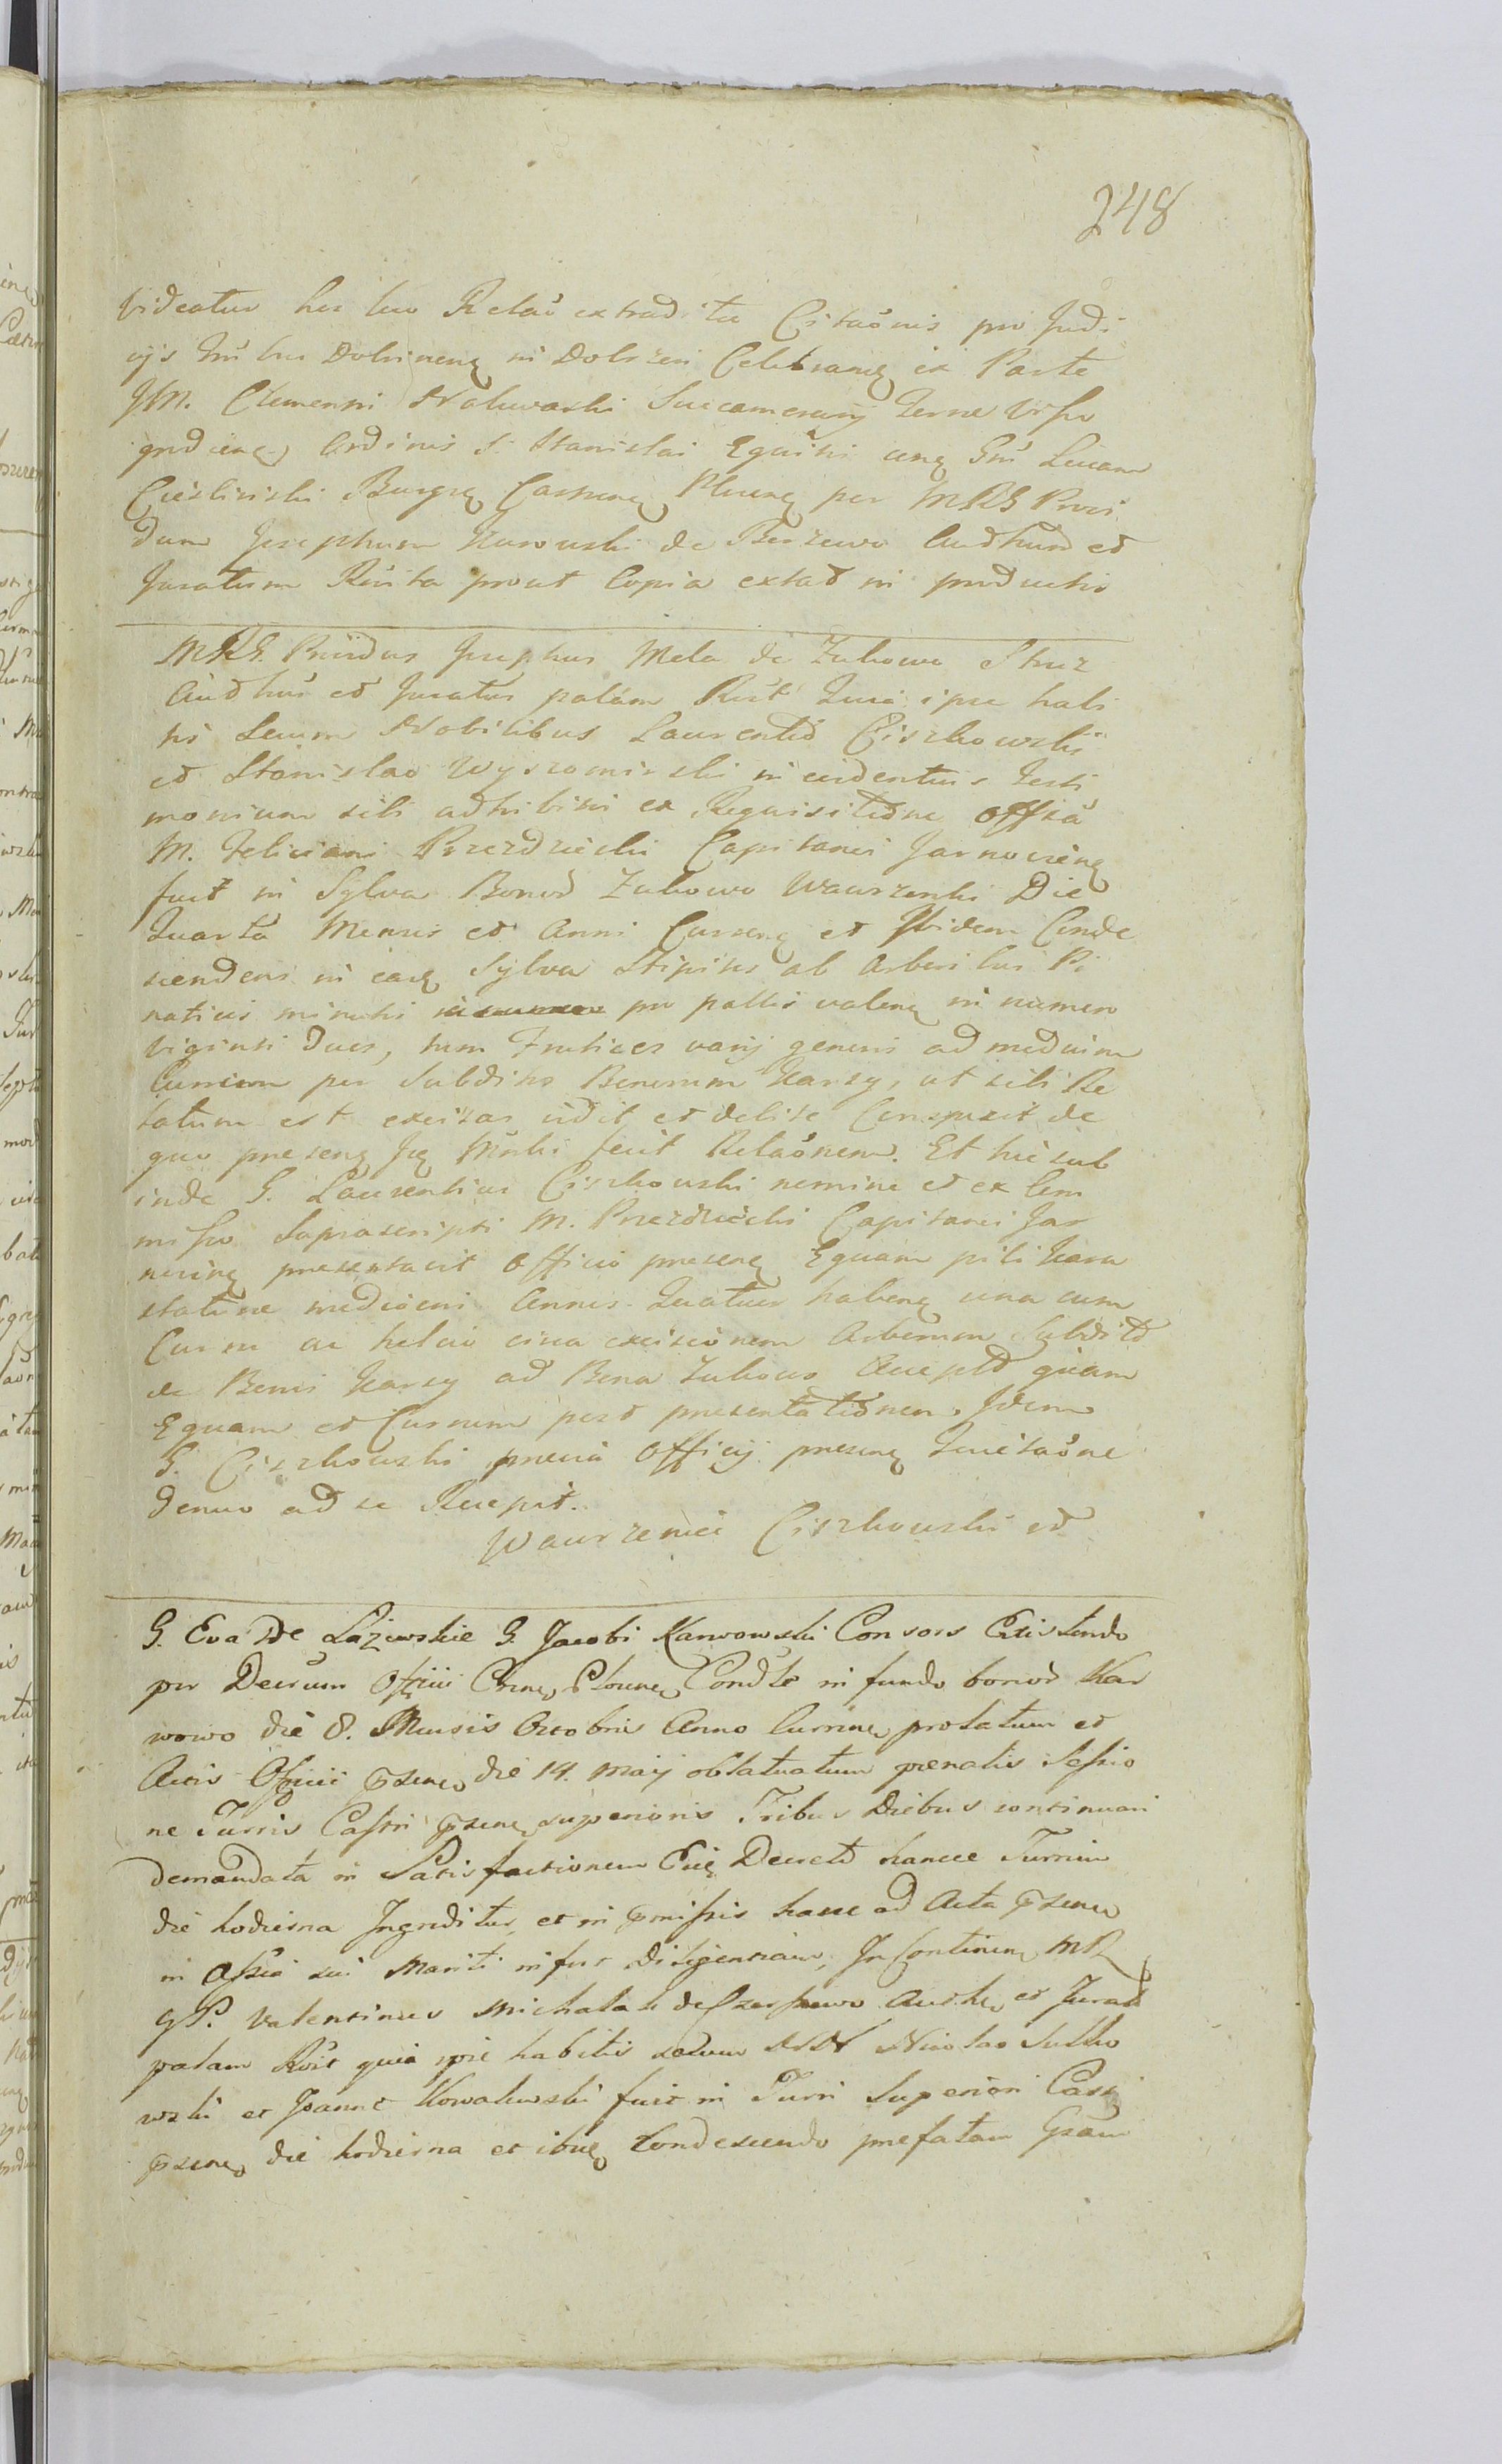 248
Videatur hic loco Relaõ extradita Citaõnis pro Judi
cijs Dobrinenꝫ in Dobrzen Celebranꝫ ex Parte
JM. Clementi Nakwaski Succamerarij Terrae Viſso
grodienꝫ Ordinis S. Stanislai Equitis
Cieslinski Burgꝫ Castrenꝫ Plocenꝫ per MRG Provi
dum Josephum Kurowski de et
Juratum prout Copia extat in productis
MRG. Providus Josephus Mela de Zukowo Struz
Authus et Juratus palam Rect Quia ipse habi
tis secum Nobilibus Laurentio Ciszkowski
et Stanislao Wyszomirski in evidentius Testi
monium sibi adhibitis ex Requisitione Officii
M. Feliciani Przezdziecki Capitanei
fuit in Sylva Bonor̃ Zukowo Wawrzonki Die
Quarta Mensis et Anni Currenꝫ et Ibidem Conde
scendens in eadꝫ Sylva Stipites ab Arboribus Pi
naticis minutis pro pallis valenꝫ in numero
Viginti Duos, tum Frutices varij generis ad medium
Currum per Subditos Bonorum Karsy, ut sibi Re
latum est excisas vidit et debite Conspexit de
quo praesenꝫ fecit Relaõnem. Et hic sub
inde G. Laurentius Ciszkowski nomine et ex Com
miſso Suprascripti M. Przezdziecki Capitanei
praesentavit Officio praesenꝫ Equam pili Kara
staturae mediocris Annos Quatuor habenꝫ una cum
Curru ac helcio circa excisionem Arborum Subdito
de Bonis Karsy ad Bona Zukowo Acceptõ quam
Equam et Currum post praesentationem, Idem
G. Ciszkowski praevia Officij praesenꝫ Quietaõne
denuo ad se Recepit.
Wawrzeniec Ciszkowski
G. Eva de Łazewskie G. Jacobi Karwowski Consors Existendo
per Decrum Officii Plocenꝫ Condto in fundo bonor̃ Kar
wowo die 8. Mensis Octobris Anno Currenꝫ prolatum et
Actis Officii pñsenꝫ die 14. Maij oblatuatum poenalis Seſsio
ne Turris Caſtri pñsenꝫ superioris Tribus Diebus continuari
demandata in Satisfactionem Decreti hancce Turrim
die hodierna Ingreditur, et in pmiſsis hacce ad Acta pñsenꝫ
in aſsia sui Mariti infert Diligentiam, In Continenꝫ MR
GP. Valentinus Michalak de Authꝫ et Jurat
palam Rect quia ipse habitis secum NN Nicolao Sulko
wski et Joanne Kowalewski fuit in Turri Superiori Castri
pñsenꝫ die hodierna et ibiꝫ Condescendo praefatam Gsam